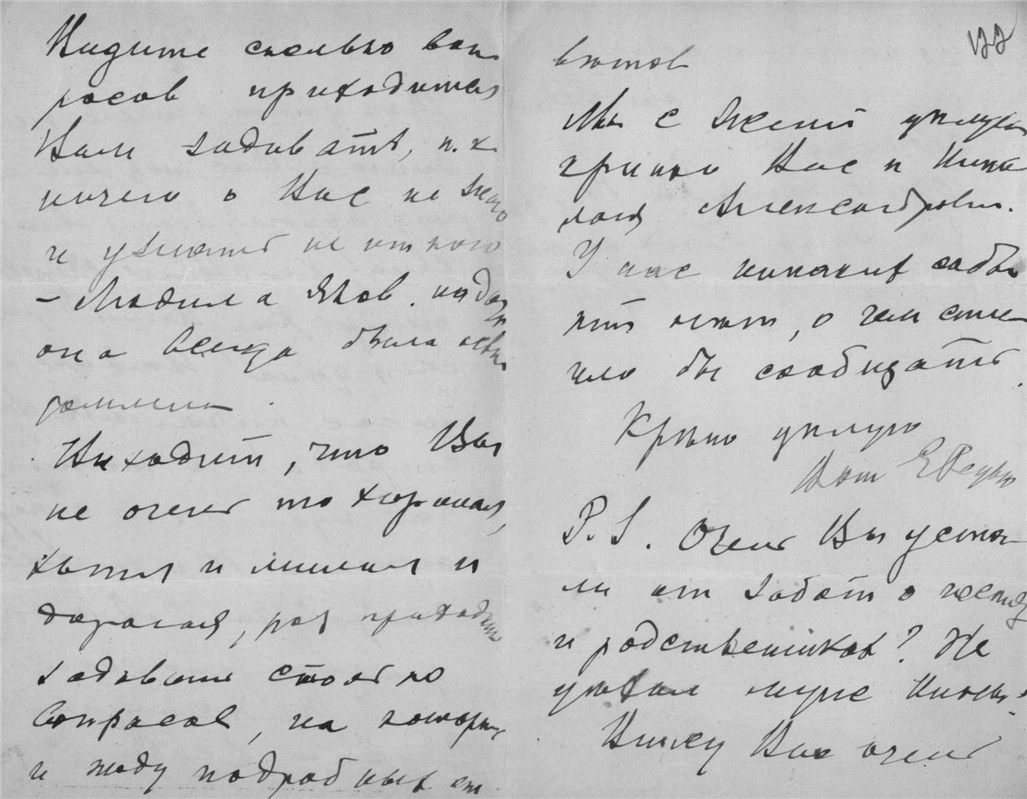 Видите сколько воп
росов приходится
Вам задавать, т.к.
ничего о Вас не знаю
и узнать не от кого
– Людмила Яков.
она всегда была осве
домлена.
Выходит, что Вы
не очень то хорошая,
хотя и милая и
дорогая, раз приходит
задавать столько
вопросов, на которые
и жду подробных от
ветов
122
Мы с Женей целуем
крепко Вас и Нико
лая Александрович.
У нас никаких забо
нет, о чем стои
ло бы сообщать.
Крепко целую
P.S. Очень Вы уста
ли от забот о
и родственниках? Не
Вижу Вас очень